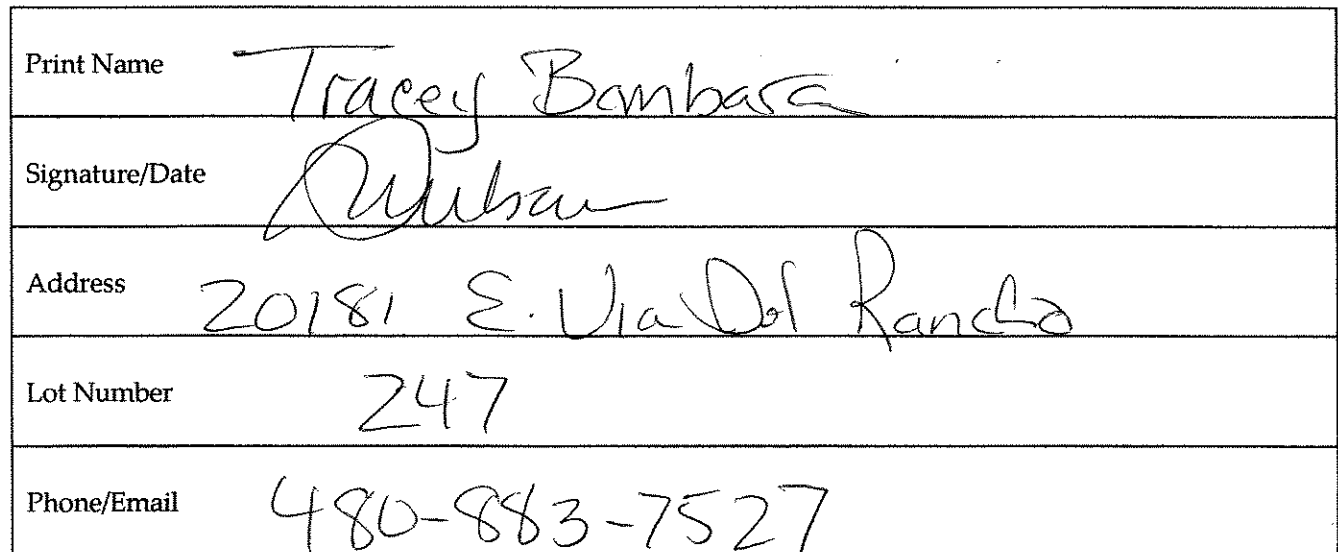 Print Name Tracey Bambara
Signature/Date
Address 20181 E. Via Del Rancho
Lot Number 247
Phone/Email 480-883-7527